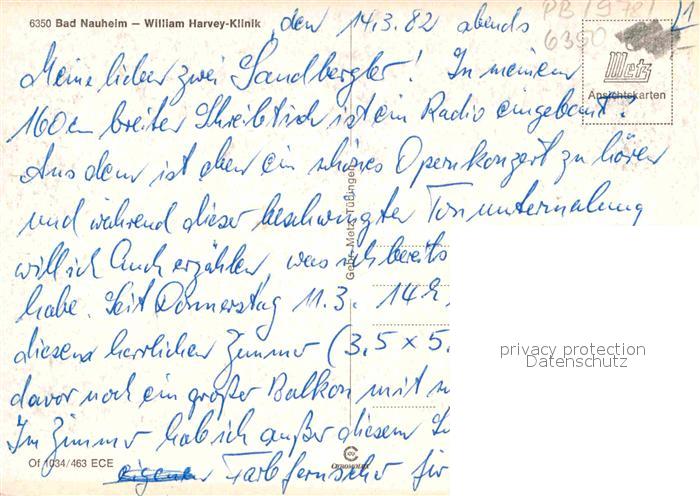 6350 Bad Nauheim — William Harvey-Klinik
PB 1978
6350
den 14.3.82 abends
Metz
Ansichtskarten
Meine lieber zwei Sandbergler! In meinem
160 cm breiten Schreibtisch ist ein Radio eingebaut!
Aus dem ist eben ein schönes Opernkonzert zu hören
und während dieser beschwingten Tonuntermalung
will ich Euch erzählen, was ich bereits
habe. Seit Donnerstag 11.3. 14 h,
diesem herrlichen Zimmer (3,5 x 5.
davor noch ein großer Balkon mit
Im Zimmer hab ich außer diesem
eigener Farbfernseher für
Gebr. Metz, Tübingen
privacy protection
Datenschutz
Of 1034/463 ECE
CHROMOLUX